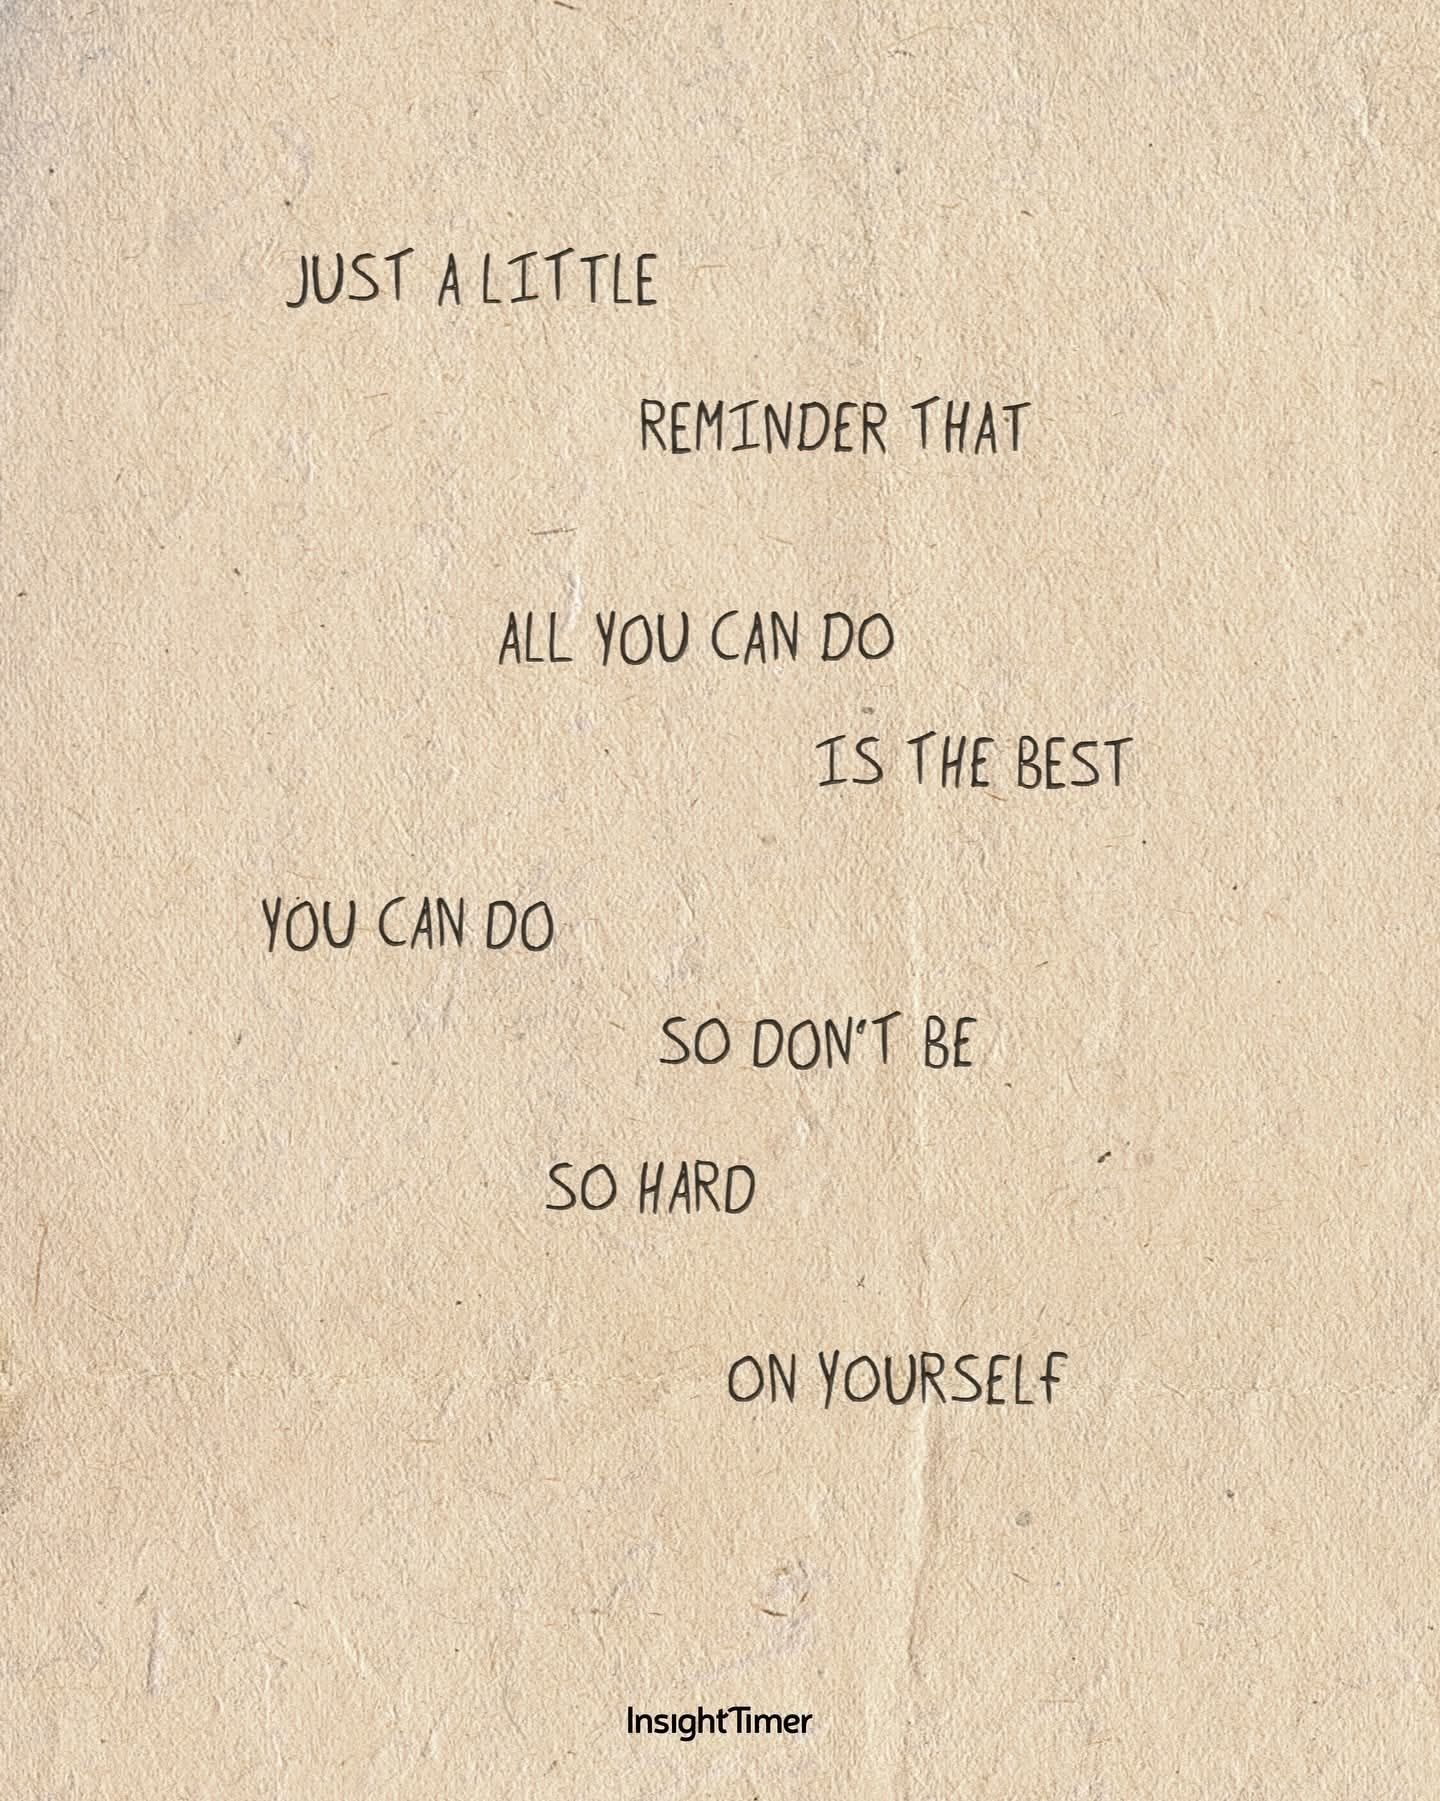 JUST A LITTLE
REMINDER THAT
ALL YOU CAN DO
IS THE BEST
YOU CAN DO
SO DON'T BE
SO HARD
ON YOURSELF
InsightTimer